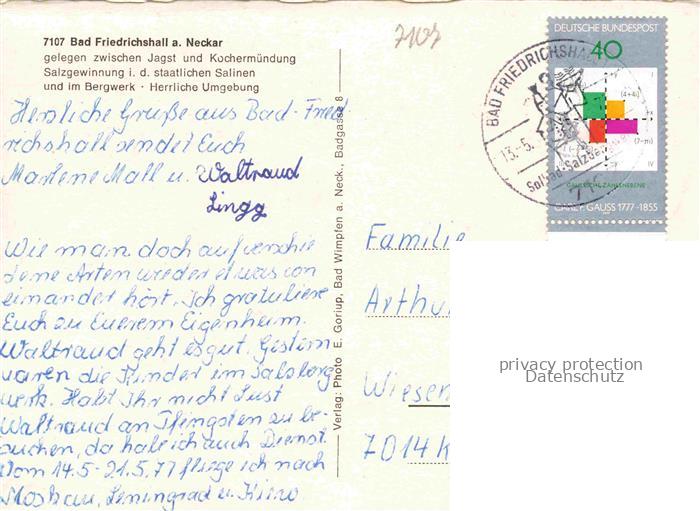 7107 Bad Friedrichshall a. Neckar
gelegen zwischen Jagst und Kochermündung
Salzgewinnung i. d. staatlichen Salinen
und im Bergwerk · Herrliche Umgebung
Herzliche Grüße aus Bad-Fried
richshall sendet Euch
Marlene Mall u. Waltraud
Lingg
Wie man doch auf verschie
dene Arten wieder etwas von
einander hört. Ich gratuliere
Euch zu Euerem Eigenheim.
Waltraud geht es gut. Gestern
waren die Kinder im Salzberg
werk. Habt Ihr nicht Lust
Waltraud an Pfingsten zu be-
suchen, da habe ich auch Dienst.
Vom 14.5-21.5.77 fliege ich nach
Moskau, Leningrad u. Kiew
Verlag: Photo E. Goriup, Bad Wimpfen a. Neck., Badgasse 8
7107
BAD FRIEDRICHSHA
13.-5.
Solbad-Salzbe
DEUTSCHE BUNDESPOST
40
+y
I
(4+4i)
+x
(7-πi)
-y
IV
GAUSSSCHE ZAHLENEBENE
CARL F. GAUSS 1777-1855
Familie
Arthu
Wiesen
7014 K
privacy protection
Datenschutz